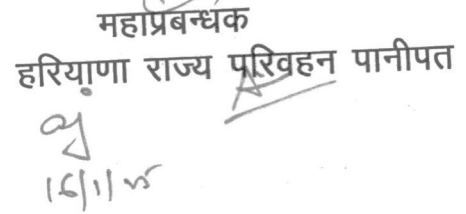 महाप्रबन्धक
हरियाणा राज्य परिवहन पानीपत
16/1/